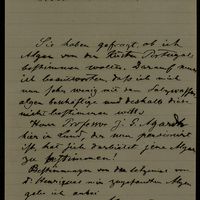 Sie haben gefragt, ob ich
Algen von der Küsten Portugals
bestimmen wollen. Darauf muss
ich beantworten, dass ich mich
nur sehr wenig mit den Salzwasser-
algen beschäftige und deshalb diese
nicht bestimmen will.
Herr Professor J. G. Agardh
hier in Lund, der nun pensionirt
ist, hat sich jene Algen
zu bestimmen!
Bestimmungen von den
mir zugesandten Algen
gebe ich anbei